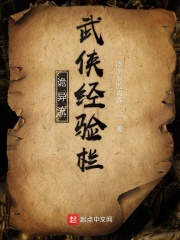 武侠经验栏
诡异流
著
起点中文网